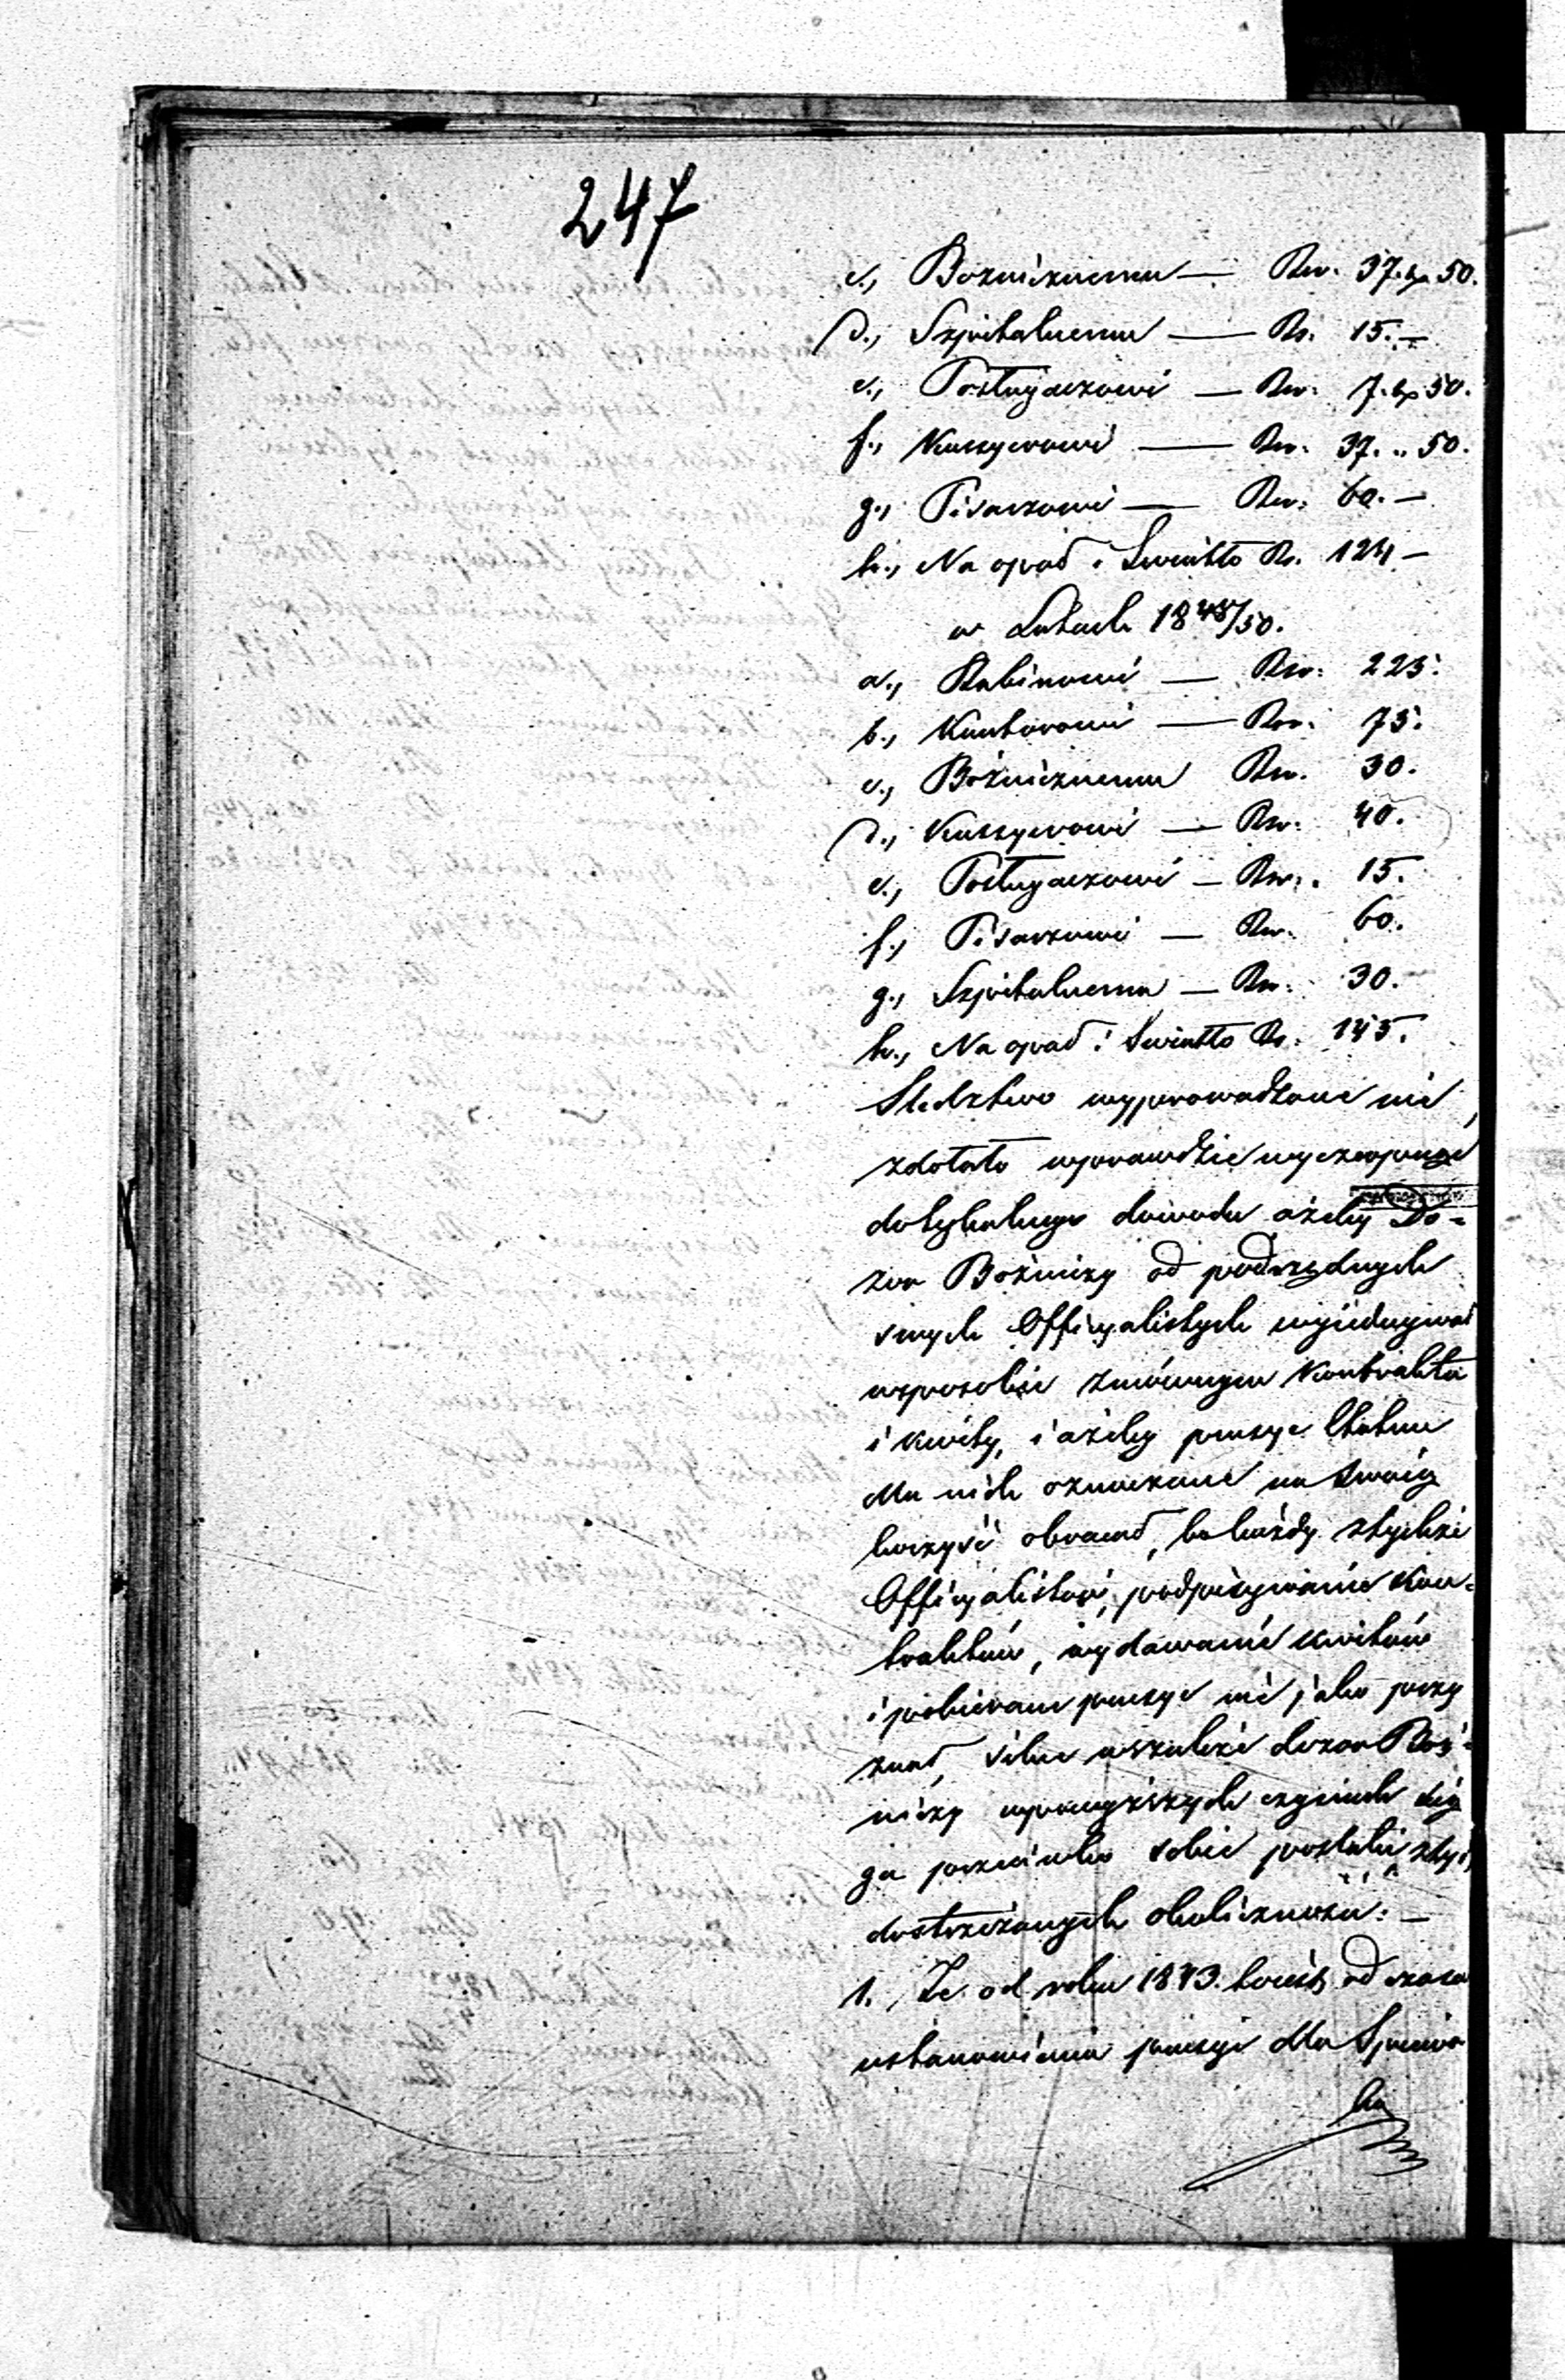 247
c., Bożnicznemu — Rsr. 37. kp 50.
d., Szpitalnemu — Rs. 15. —
e., Posługaczowi — Rsr. 7. kp 50.
f., Kassyerowi — Rsr. 37. „ 50.
g., Pisarzowi — Rsr. 60. —
h., Na opał i Swiatło Rs. 124 —
w Latach 1848/50.
a., Rabinowi — Rsr. 225.
b., Kantorowi — Rsr. 75.
c., Bożnicznemu Rsr. 30.
d., Kassyerowi — Rsr. 40.
e., Posługaczowi — Rsr. 15.
f., Pisarzowi — Rsr. 60.
g., Szpitalnemu — Rsr. 30.
h., Na opał i Swiatło Rs. 145.
Sledztwo wyprowadzone nie
zdołało wprawdzie
dotykalnego dowodu ażeby Do-
zor Bożniczy od podrzędnych
swych Officyalistych
wsposobie zmównym Kontrakta
i kwity, i ażeby pensye Etatem
dla nich oznaczone na swoią
korzyść obracał, bo każdy
Officyalistów, podpisywanie Kon-
traktów, wydawanie kwitów
i pobieranie pensye nie jako przy
znał, silne wszakże dozor Boż-
niczy w czynach
ga przeciwko sobie poszlaki,
dostrzeżonych okoliczności: —
1. Że od roku 1843. to iest od czasu
ustanowienia pensyi dla